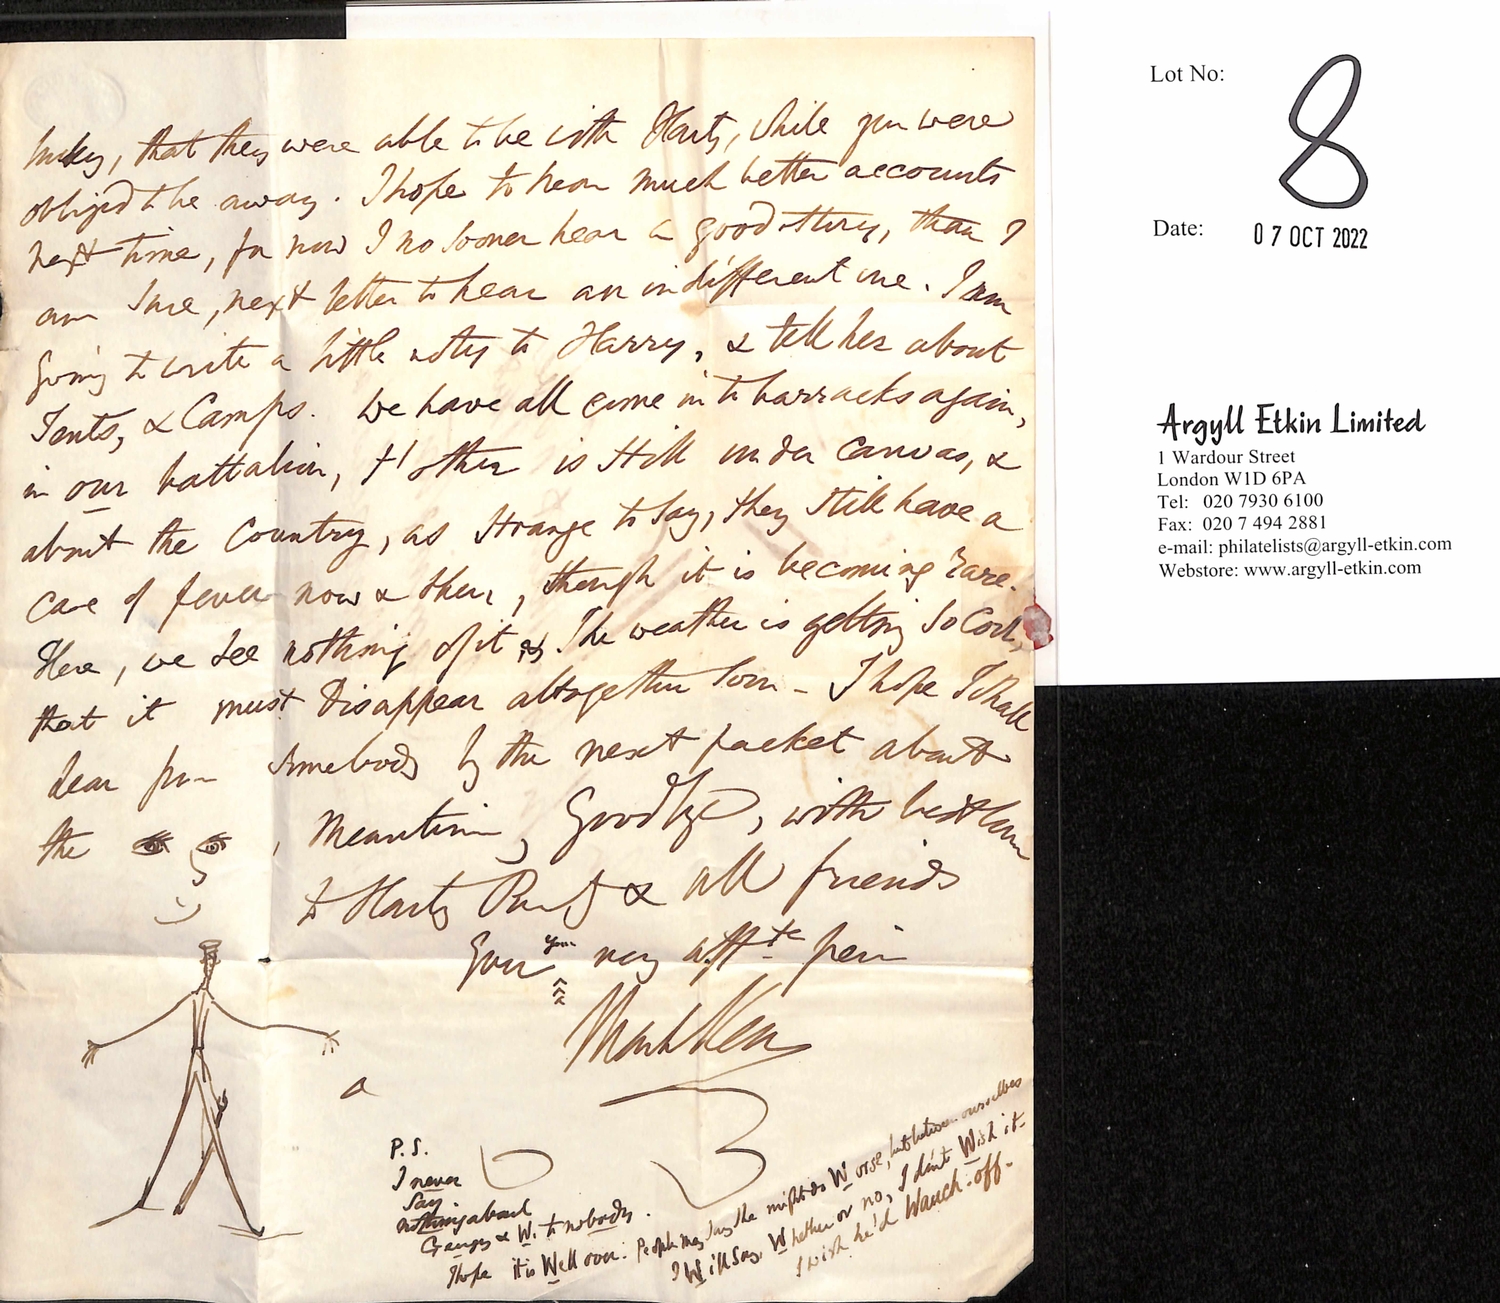 lucky, that they were able to be with Harty, while you were
obliged to be away. I hope to hear much better accounts
next time, for now I no sooner hear a good story, than I
am sure, next letter to hear an indifferent one. I am
going to write a little noty to Harry, & tell her about
Tents, & Camps. We have all come into barracks again,
in our battalion, t'other is still under canvas, &
about the Country, as strange to say, they still have a
case of fever now & then, though it is becoming rare.
Here, we see nothing of it, The weather is getting so Cool,
that it must disappear altogether soon - I hope I shall
hear from somebody by the next packet about
the , Meantime, Goodbye, with best love
to Harty & all friends
your
Your very afft.te
Mark Kerr
a
P.S.
I never
Say
nothing about
Georgy & W. to nobody.
I hope it is Well over: People may say she might do Worse, but between ourselves
I Will say, Whether or no, I don't Wish it.
I wish he'd Wauch-off-
Lot No: 8
Date: 07 OCT 2022
Argyll Etkin Limited
1 Wardour Street
London W1D 6PA
Tel: 020 7930 6100
Fax: 020 7 494 2881
e-mail: philatelists@argyll-etkin.com
Webstore: www.argyll-etkin.com